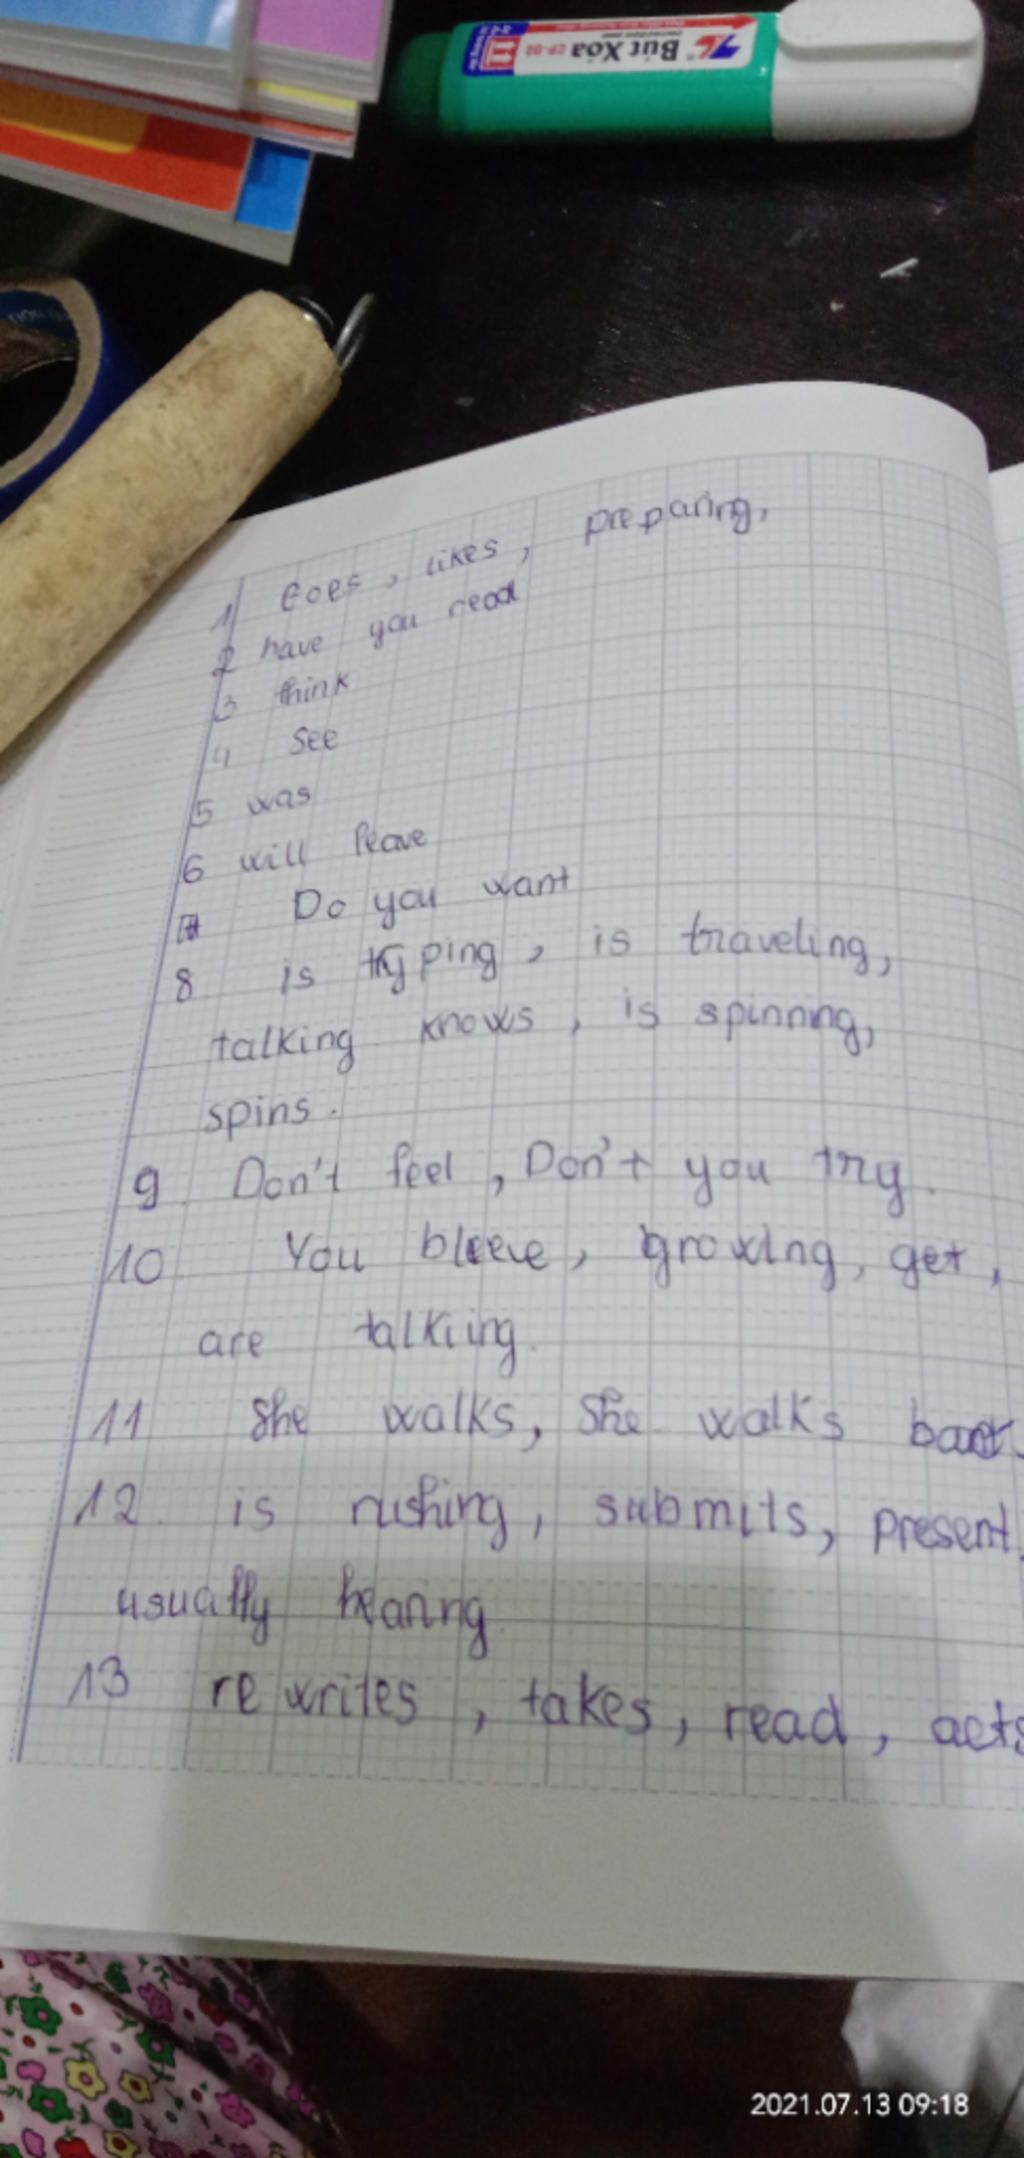 Bút Xóa
CP-02
1 Goes, likes, preparing,
2 have you read
3 think
4 See
5 was
6 will leave
7 Do you want
8 is typing, is traveling,
talking knows, is spinning,
spins.
9. Don't feel, Don't you try.
10 You bleeve, growing, get,
are talkiing.
11 She walks, She walks
12. is rushing, submits, present,
usually hearing.
13 rewrites, takes, read, acts
2021.07.13 09:18